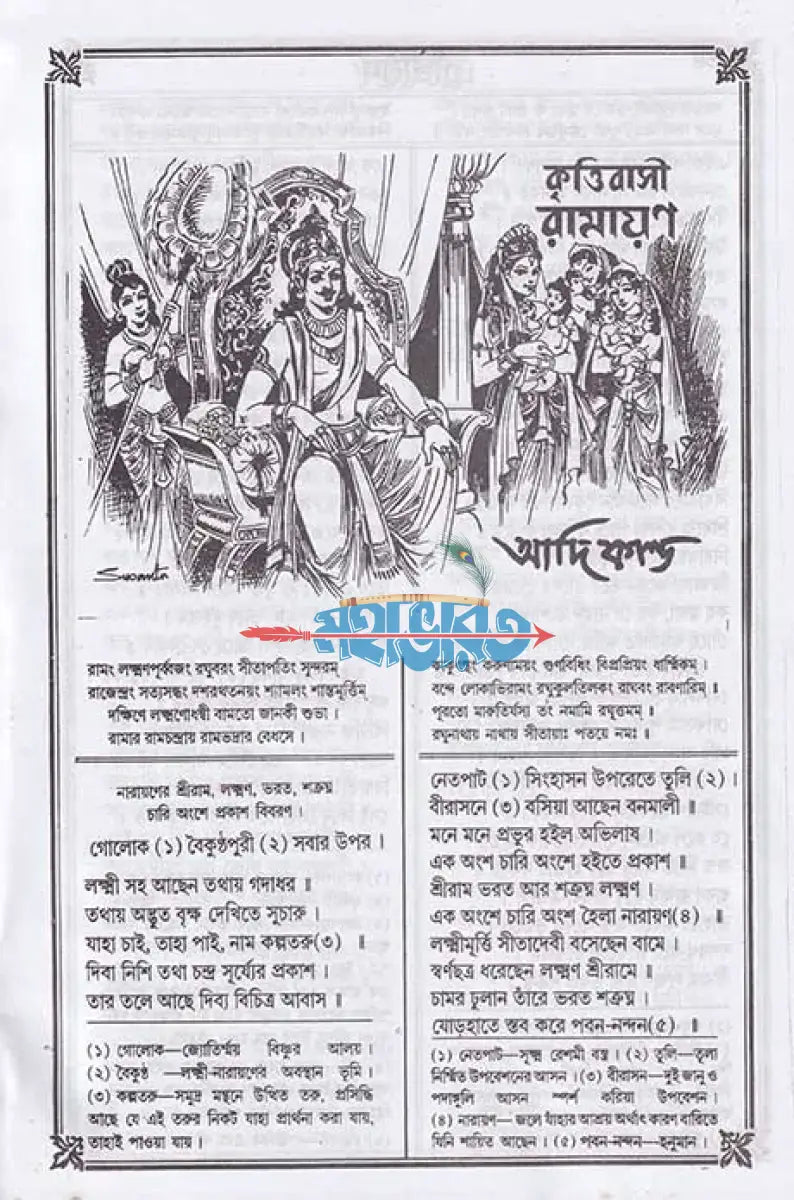 কৃত্তিবাসী
রামায়ণ
আদি কাণ্ড
Susanta
মহাভারত
রামং লক্ষ্মণপূর্ব্বজং রঘুবরং সীতাপতিং সুন্দরম্
রাজেন্দ্রং সত্যসন্ধং দশরথতনয়ং শ্যামলং শান্তমূর্ত্তিম্
দক্ষিণে লক্ষ্মণোধন্বী বামতো জানকী শুভা ।
রামায় রামচন্দ্রায় রামভদ্রায় বেধসে ।
করুণাময়ং গুণনিধিং বিপ্রপ্রিয়ং ধার্ম্মিকম্ ।
বন্দে লোকাভিরামং রঘুকুলতিলকং রাঘবং রাবণারিম্ ॥
পূরতো মারুতির্যস্য তং নমামি রঘূত্তমম্ ।
রঘুনাথায় নাথায় সীতায়াঃ পতয়ে নমঃ ॥
নারায়ণের শ্রীরাম, লক্ষ্মণ, ভরত, শত্রুঘ্ন
চারি অংশে প্রকাশ বিবরণ ।
গোলোক (১) বৈকুণ্ঠপুরী (২) সবার উপর ।
লক্ষ্মী সহ আছেন তথায় গদাধর ॥
তথায় অদ্ভুত বৃক্ষ দেখিতে সুচারু ।
যাহা চাই, তাহা পাই, নাম কল্পতরু(৩) ॥
দিবা নিশি তথা চন্দ্র সূর্য্যের প্রকাশ ।
তার তলে আছে দিব্য বিচিত্র আবাস ॥
(১) গোলোক—জ্যোতির্ম্ময় বিষ্ণুর আলয় ।
(২) বৈকুণ্ঠ —লক্ষ্মী-নারায়ণের অবস্থান ভূমি ।
(৩) কল্পতরু—সমুদ্র মন্থনে উত্থিত তরু, প্রসিদ্ধি
আছে যে এই তরুর নিকট যাহা প্রার্থনা করা যায়,
তাহাই পাওয়া যায় ।
নেতপাট (১) সিংহাসন উপরেতে তুলি (২) ।
বীরাসনে (৩) বসিয়া আছেন বনমালী ॥
মনে মনে প্রভুর হইল অভিলাষ ।
এক অংশ চারি অংশে হইতে প্রকাশ ॥
শ্রীরাম ভরত আর শত্রুঘ্ন লক্ষ্মণ ।
এক অংশে চারি অংশ হৈলা নারায়ণ(৪) ॥
লক্ষ্মীমূর্ত্তি সীতাদেবী বসেছেন বামে ।
স্বর্ণছত্র ধরেছেন লক্ষ্মণ শ্রীরামে ॥
চামর ঢুলান তাঁরে ভরত শত্রুঘ্ন ।
যোড়হাতে স্তব করে পবন-নন্দন(৫) ॥
(১) নেতপাট—সূক্ষ্ম রেশমী বস্ত্র । (২) তুলি—তুলা
নির্ম্মিত উপবেশনের আসন । (৩) বীরাসন—দুই জানু ও
পদাঙ্গুলি আসন স্পর্শ করিয়া উপবেশন ।
(৪) নারায়ণ— জলে যাঁহার আশ্রয় অর্থাৎ কারণ বারিতে
যিনি শায়িত আছেন । (৫) পবন-নন্দন—হনুমান ।